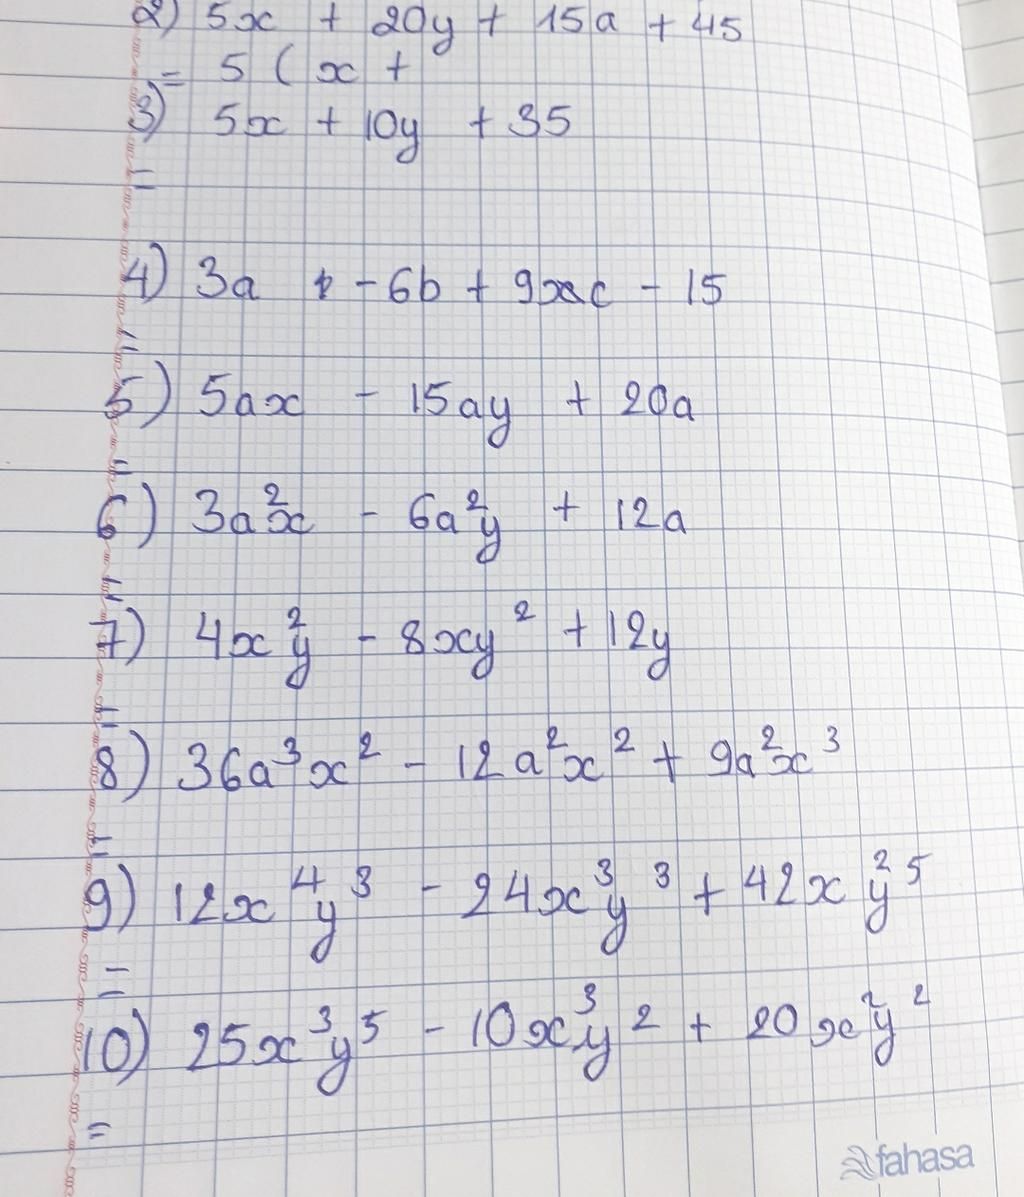 2) 5x + 20y + 15a + 45
= 5 ( x +
3) 5x + 10y + 35
=
4) 3a - 6b + 9xc - 15
=
5) 5ax - 15ay + 20a
=
6) 3a²x - 6a²y + 12a
=
7) 4x²y - 8xy² + 12y
=
8) 36a³x² - 12a²x² + 9a²x³
=
9) 12x⁴y³ - 24x³y³ + 42x²y⁵
=
10) 25x³y⁵ - 10x³y² + 20x²y²
=
fahasa